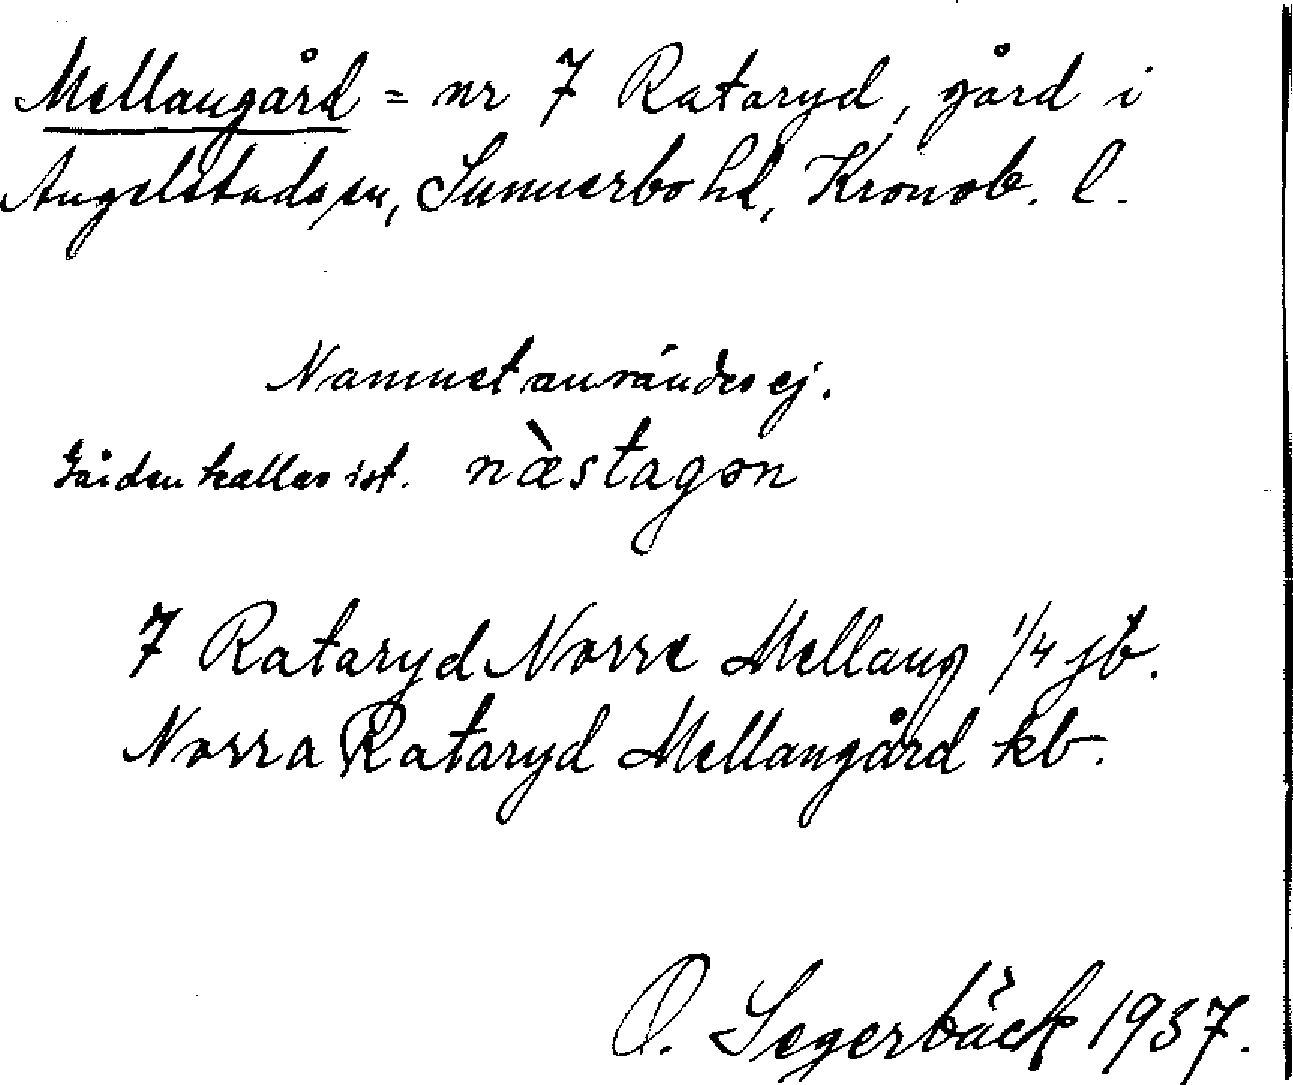 Mellangård = nr 7 Rataryd, gård i
Angelstads sn, Sunnerbo hd, Kronob. l.
Namnet användes ej.
Gården kallas ist. næ̀stagən
7 Rataryd Norre Mellang 1/4 jb.
Norra Rataryd Mellangård kb.
O. Segerbäck 1937.